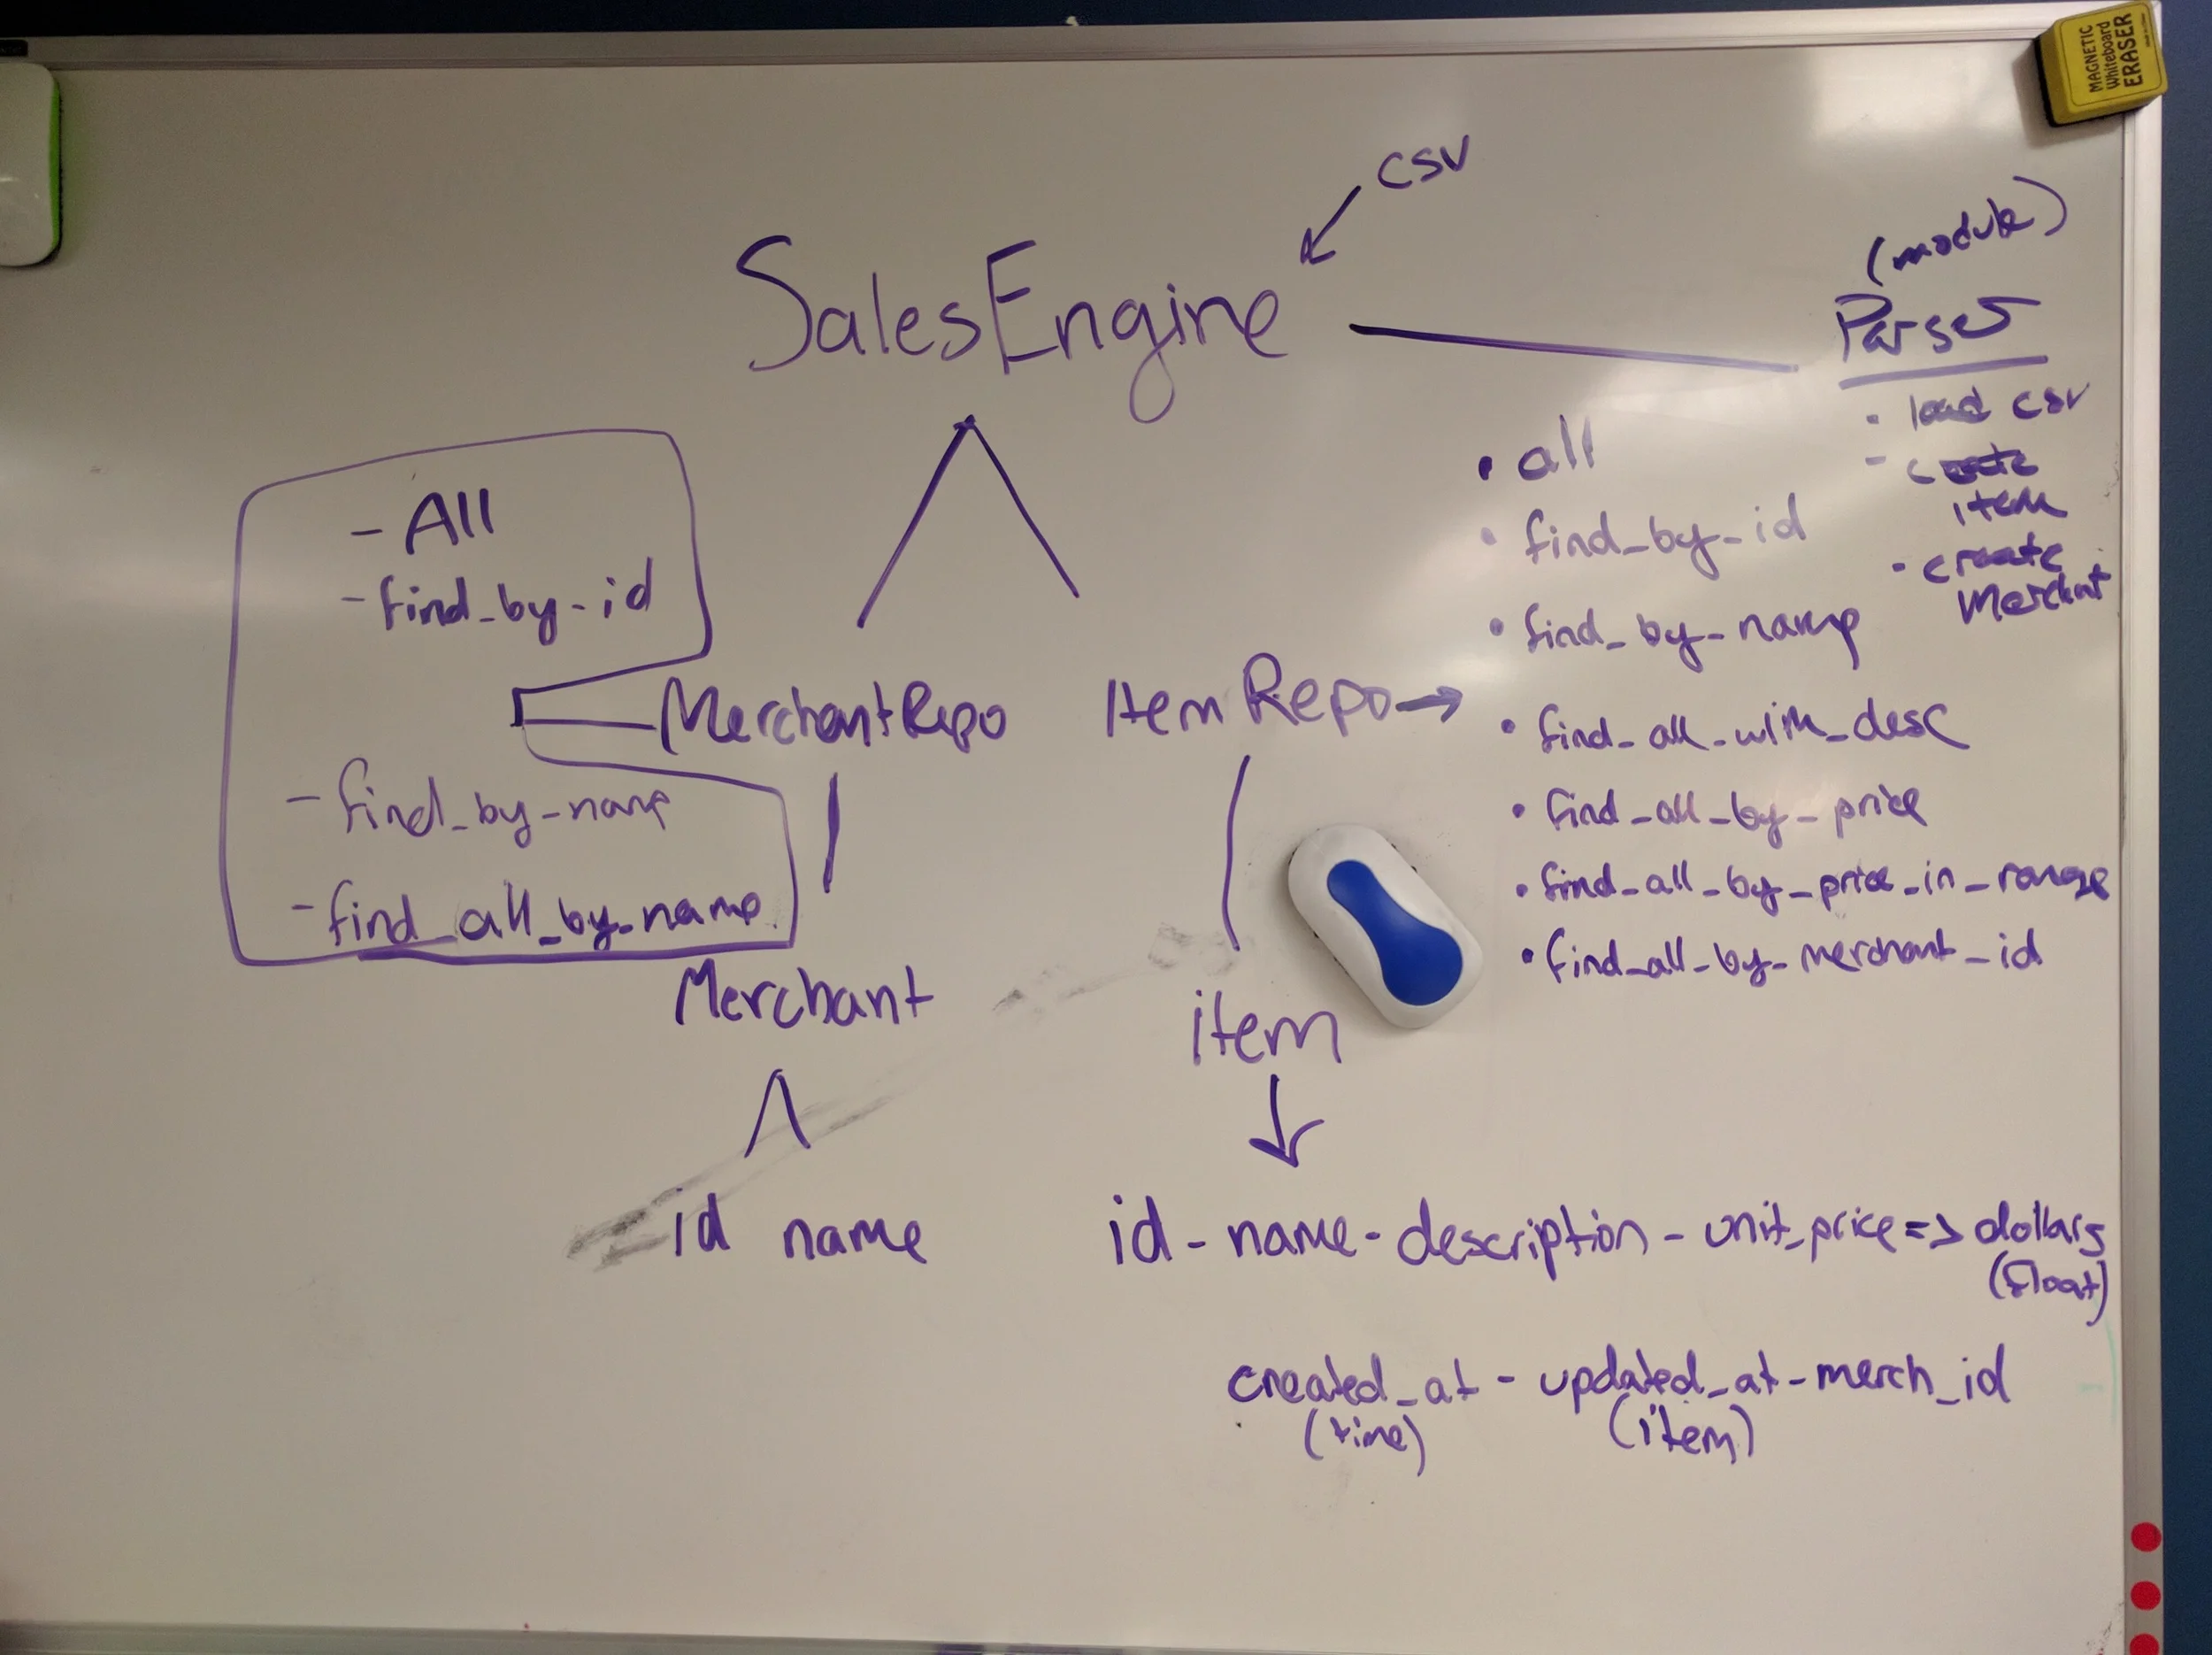 MAGNETIC
Whiteboard
ERASER
CSV
SalesEngine
(module)
Parser
· load csv
- create
item
· create
Merchant
- All
- find_by-id
MerchantRepo
- find_by-name
- find_all_by-name
ItemRepo→
• all
• find_by-id
• find_by-name
• find_all-with_desc
• find_all_by_price
• find_all_by_price_in_range
• find_all_by-merchant_id
Merchant
item
id name
id - name - description - unit_price => dollars
(float)
created_at - updated_at - merch_id
(time) (item)